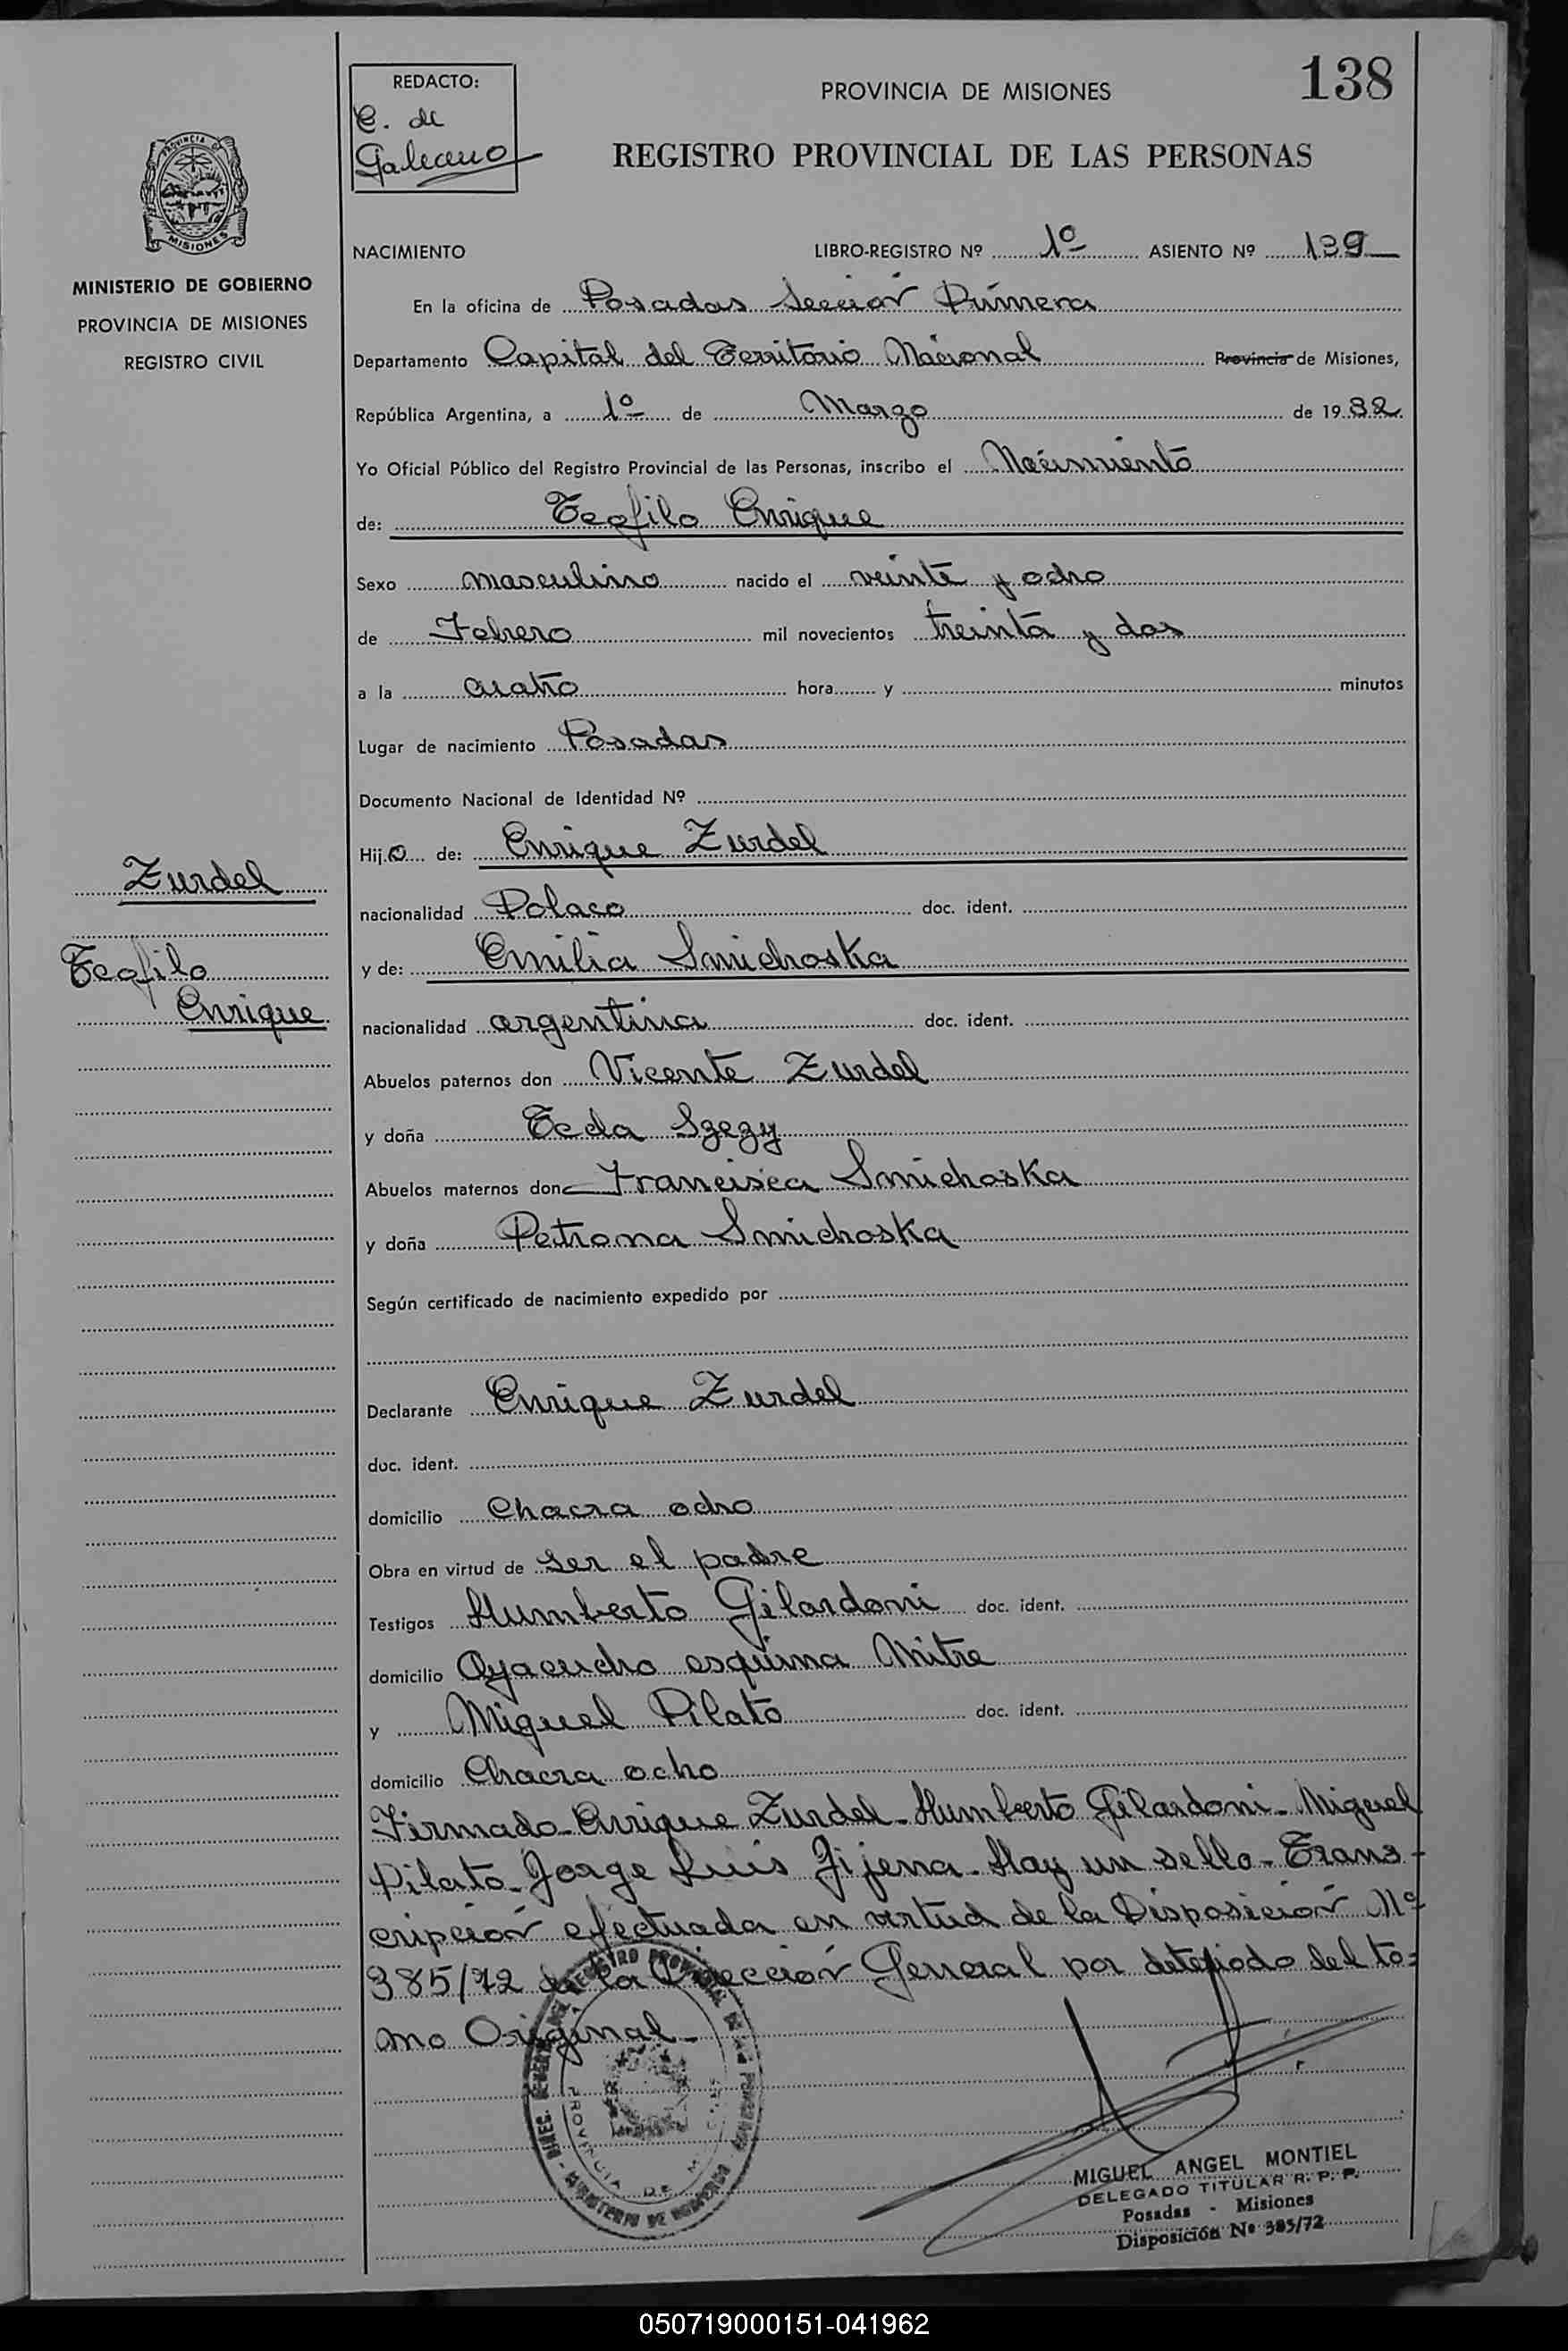 138
REDACTO:
C. de
Galeano
PROVINCIA DE MISIONES
REGISTRO PROVINCIAL DE LAS PERSONAS
PROVINCIA DE
MISIONES
MINISTERIO DE GOBIERNO
PROVINCIA DE MISIONES
REGISTRO CIVIL
NACIMIENTO LIBRO-REGISTRO Nº 1º ASIENTO Nº 139
En la oficina de Posadas Sección Primera
Departamento Capital del Territorio Nacional Provincia de Misiones,
República Argentina, a 1º de Marzo de 1932.
Yo Oficial Público del Registro Provincial de las Personas, inscribo el Nacimiento
de: Teofilo Enrique
Sexo masculino nacido el veinte y ocho
de Febrero mil novecientos treinta y dos
a la cuatro hora y minutos
Lugar de nacimiento Posadas
Documento Nacional de Identidad Nº
Hijo de: Enrique Zurdel
nacionalidad Polaco doc. ident.
y de: Emilia Smichoska
nacionalidad argentina doc. ident.
Abuelos paternos don Vicente Zurdel
y doña Tecla Szezy
Abuelos maternos don Francisca Smichoska
y doña Petrona Smichoska
Según certificado de nacimiento expedido por
Declarante Enrique Zurdel
doc. ident.
domicilio Chacra ocho
Obra en virtud de ser el padre
Testigos Humberto Gilardoni doc. ident.
domicilio Ayacucho esquina Mitre
y Miguel Pilato doc. ident.
domicilio Chacra ocho
Firmado-Enrique Zurdel-Humberto Gilardoni-Miguel
Pilato-Jorge Luis Jijena-Hay un sello-Trans-
cripción efectuada en virtud de la Disposición Nº
385/72 de la Dirección General por deteriodo del to=
mo Original-
Zurdel
Teofilo
Enrique
DIREC. GENERAL DEL REGISTRO PROVINCIAL DE LAS PERSONAS - MINISTERIO DE GOBIERNO -
PROVINCIA DE MISIONES
MIGUEL ANGEL MONTIEL
DELEGADO TITULAR R. P. P.
Posadas - Misiones
Disposición Nº 385/72
050719000151-041962